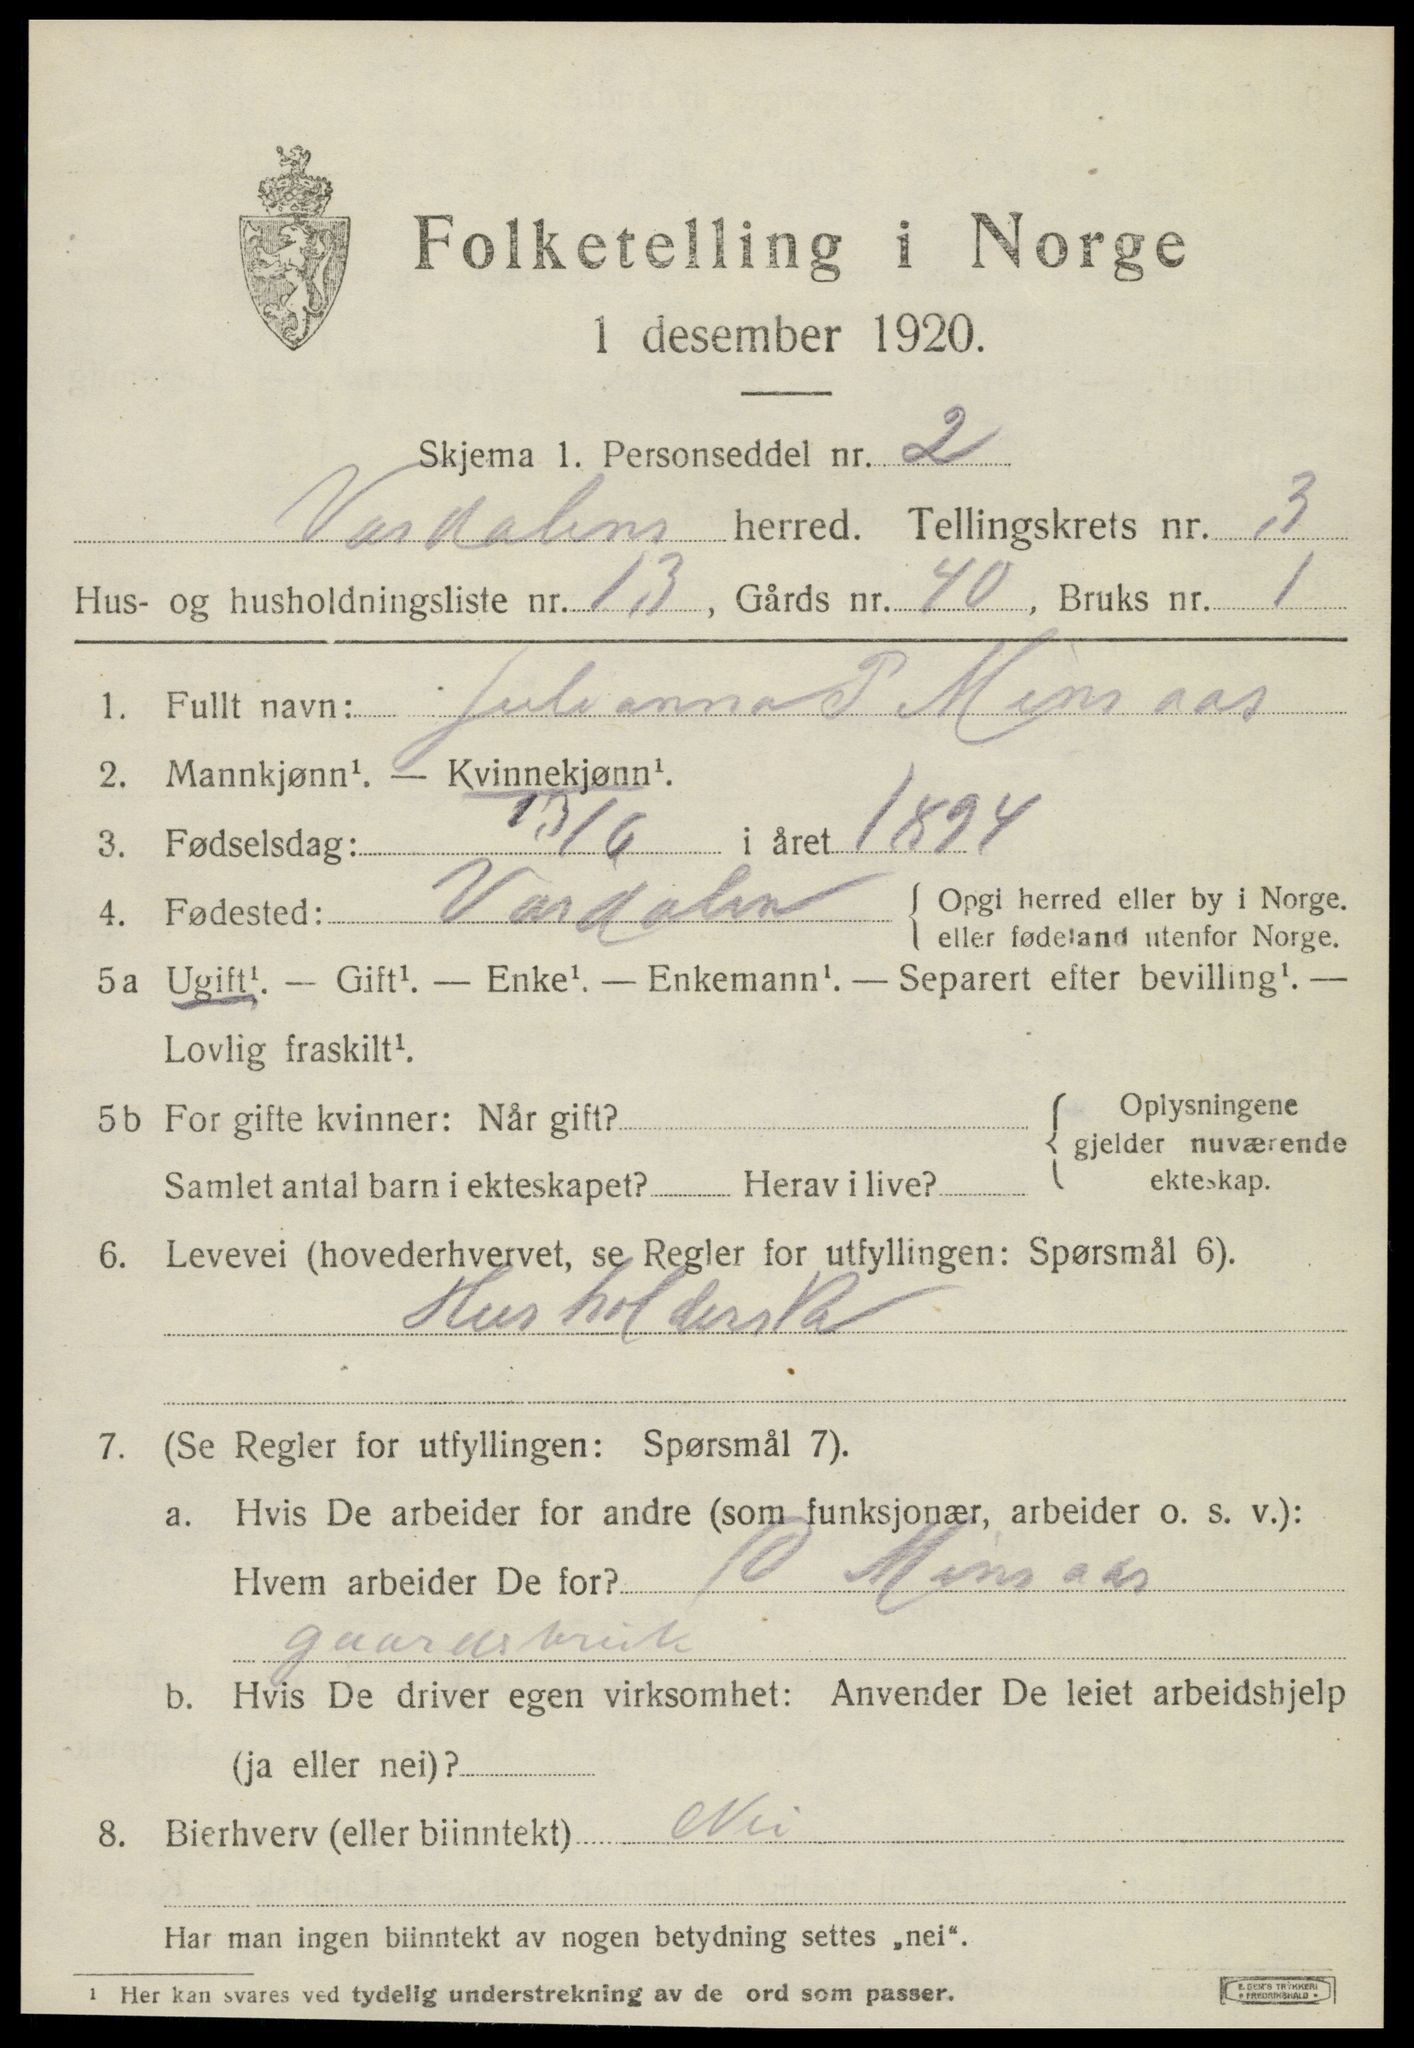 Folketelling i Norge
1 desember 1920.
Skjema 1. Personseddel nr. 2
Vardalens herred. Tellingskrets nr. 3
Hus- og husholdningsliste nr. 13, Gårds nr. 40, Bruks nr. 1
1. Fullt navn: Julianna P Minsaas
2. Mannkjønn¹. — Kvinnekjønn¹.
3. Fødselsdag: 13/6 i året 1894
4. Fødested: Vardalen { Opgi herred eller by i Norge.
eller fødeland utenfor Norge.
5a Ugift¹. — Gift¹. — Enke¹. — Enkemann¹. — Separert efter bevilling¹. —
Lovlig fraskilt¹.
5b For gifte kvinner: Når gift? { Oplysningene
gjelder nuværende
Samlet antal barn i ekteskapet? Herav i live? ekteskap.
6. Levevei (hovederhvervet, se Regler for utfyllingen: Spørsmål 6).
Husholderska
7. (Se Regler for utfyllingen: Spørsmål 7).
a. Hvis De arbeider for andre (som funksjonær, arbeider o. s. v.):
Hvem arbeider De for? P Minsaas
gaardsbruk
b. Hvis De driver egen virksomhet: Anvender De leiet arbeidshjelp
(ja eller nei)?
8. Bierhverv (eller biinntekt) Nei
Har man ingen biinntekt av nogen betydning settes „nei“.
¹ Her kan svares ved tydelig understrekning av de ord som passer.
E. SEM'S TRYKKERI
FREDRIKSHALD